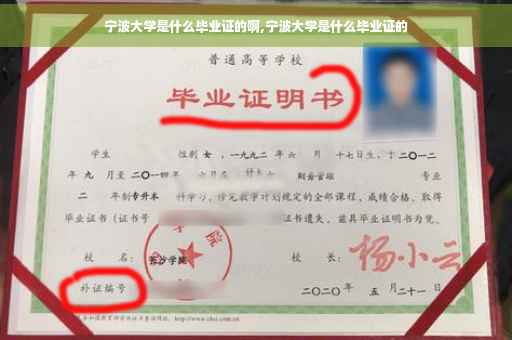 宁波大学是什么毕业证的啊,宁波大学是什么毕业证的
普通高等学校
毕业证明书
学生 性别 女 ，一九九二 年 六 月 十七日生，于 二〇一二
年 九 月至 二〇一四 年 六月在 财务管理 专业
二 年制 专升本 科学习，修完教学计划规定的全部课程，成绩合格，取得
毕业证书（证书号 证书遗失，兹具毕业证明书为凭。
校 名： 长沙学院 校 长： 杨小云
补证编号 二〇二〇年 五 月 二十一日
http://www.chsi.com.cn